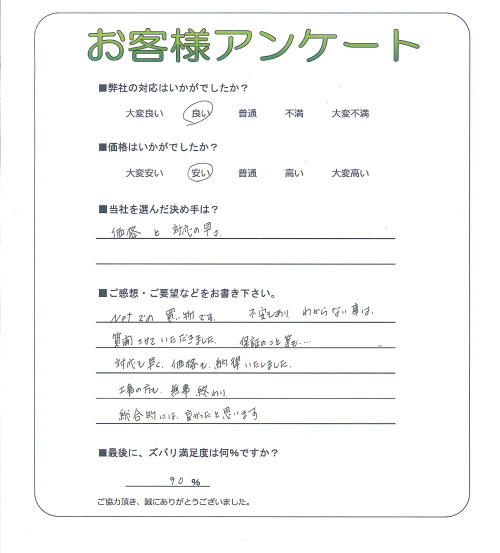 お客様アンケート
■弊社の対応はいかがでしたか？
大変良い 良い 普通 不満 大変不満
■価格はいかがでしたか？
大変安い 安い 普通 高い 大変高い
■当社を選んだ決め手は？
価格 と 対応の早さ
■ご感想・ご要望などをお書き下さい。
Netでの 買い物です。 不安もあり わからない事は、
質問させていただきました。 保証のこと等も…
対応も早く、価格も、納得いたしました。
工事の方も、無事 終わり
総合的には、良かったと思います
■最後に、ズバリ満足度は何％ですか？
90 ％
ご協力頂き、誠にありがとうございました。